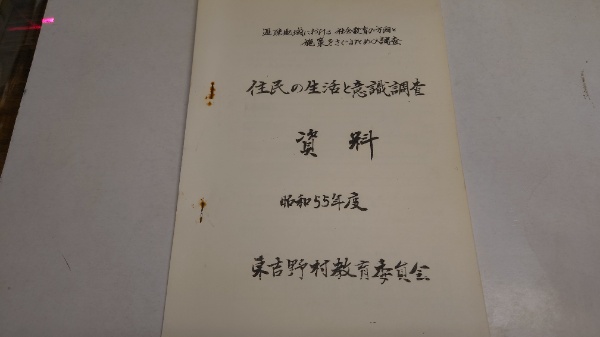 過疎地域における社会教育の方向と
施策をさぐるための調査
住民の生活と意識調査
資料
昭和55年度
東吉野村教育委員会